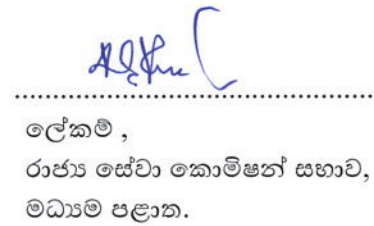 ලේකම් ,
රාජ්‍ය සේවා කොමිෂන් සභාව,
මධ්‍යම පළාත.